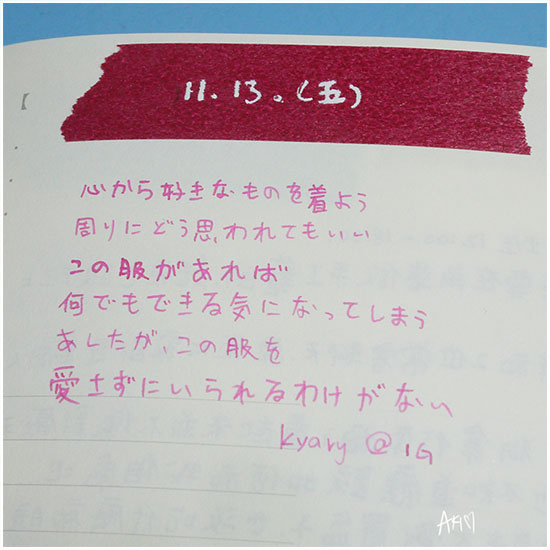 11.13.(五)
心から好きなものを着よう
周りにどう思われてもいい
この服があれば
何でもできる気になってしまう
あしたが、この服を
愛さずにいられるわけがない
kyary @ IG